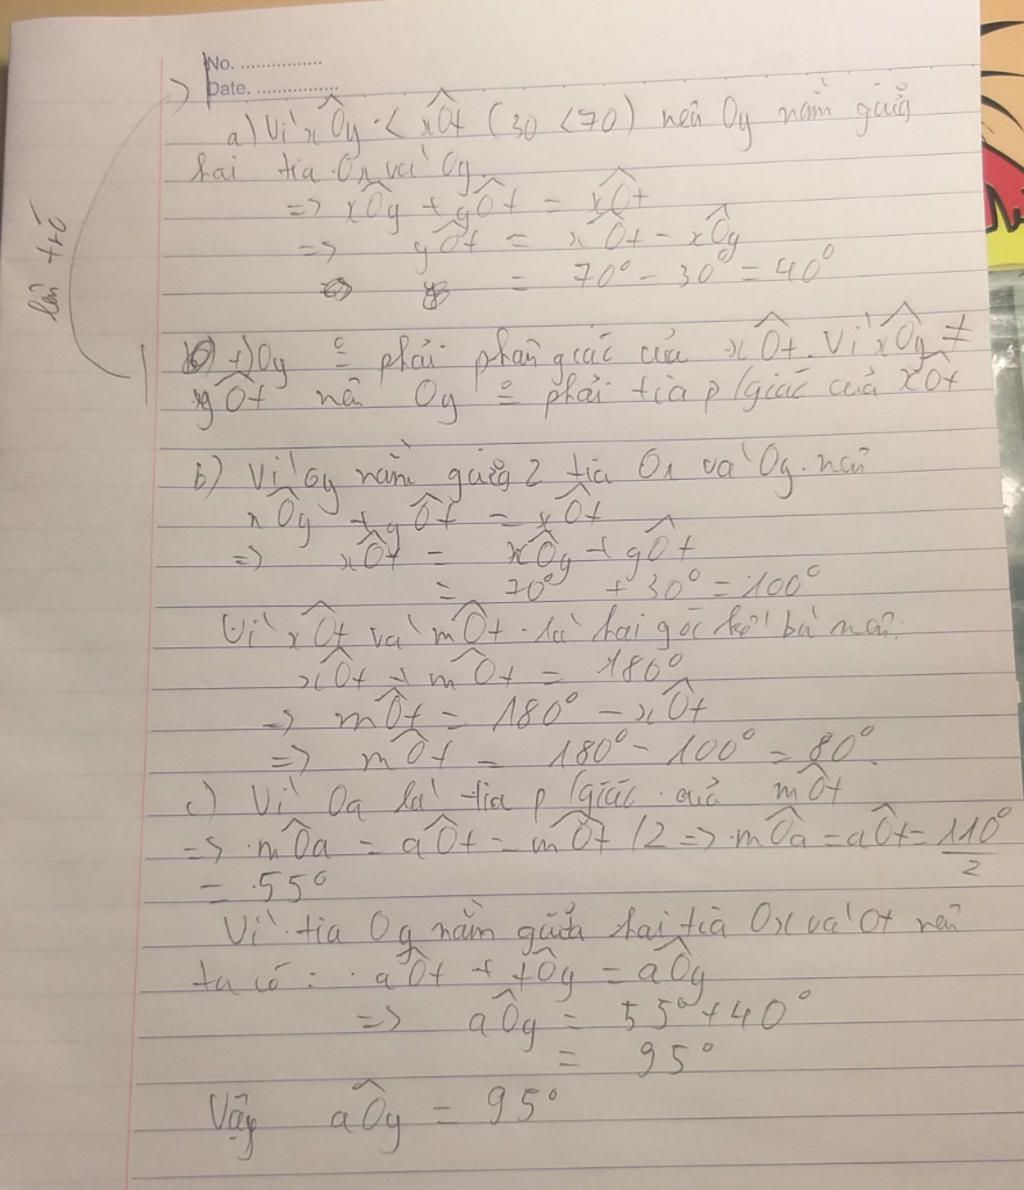 No. ................
Date. ................
a) Vì xÔy < xÔt (30 < 70) nên Oy nằm giữa
hai tia Ox và Oy.
=> xÔy + yÔt = xÔt
=> yÔt = xÔt - xÔy
= 70° - 30° = 40°
lên tró
+) Oy phải phân giác của xÔt. Vì xÔy ≠
yÔt nên Oy phải tia p/giác của xÔt
b) Vì Oy nằm giữa 2 tia Ox và Oy nên
xÔy + yÔt = xÔt
=> xÔt = xÔy + yÔt
= 70° + 30° = 100°
Vì xÔt và mÔt là hai góc kề bù nên:
xÔt + mÔt = 180°
=> mÔt = 180° - xÔt
=> mÔt = 180° - 100° = 80°.
c) Vì Oa là tia p/giác của mÔt
=> mÔa = aÔt = mÔt /2 => mÔa = aÔt = 110°/2
= 55°
Vì tia Oy nằm giữa hai tia Ox và Ot nên
ta có: aÔt + tÔy = aÔy
=> aÔy = 55° + 40°
= 95°
Vậy aÔy = 95°